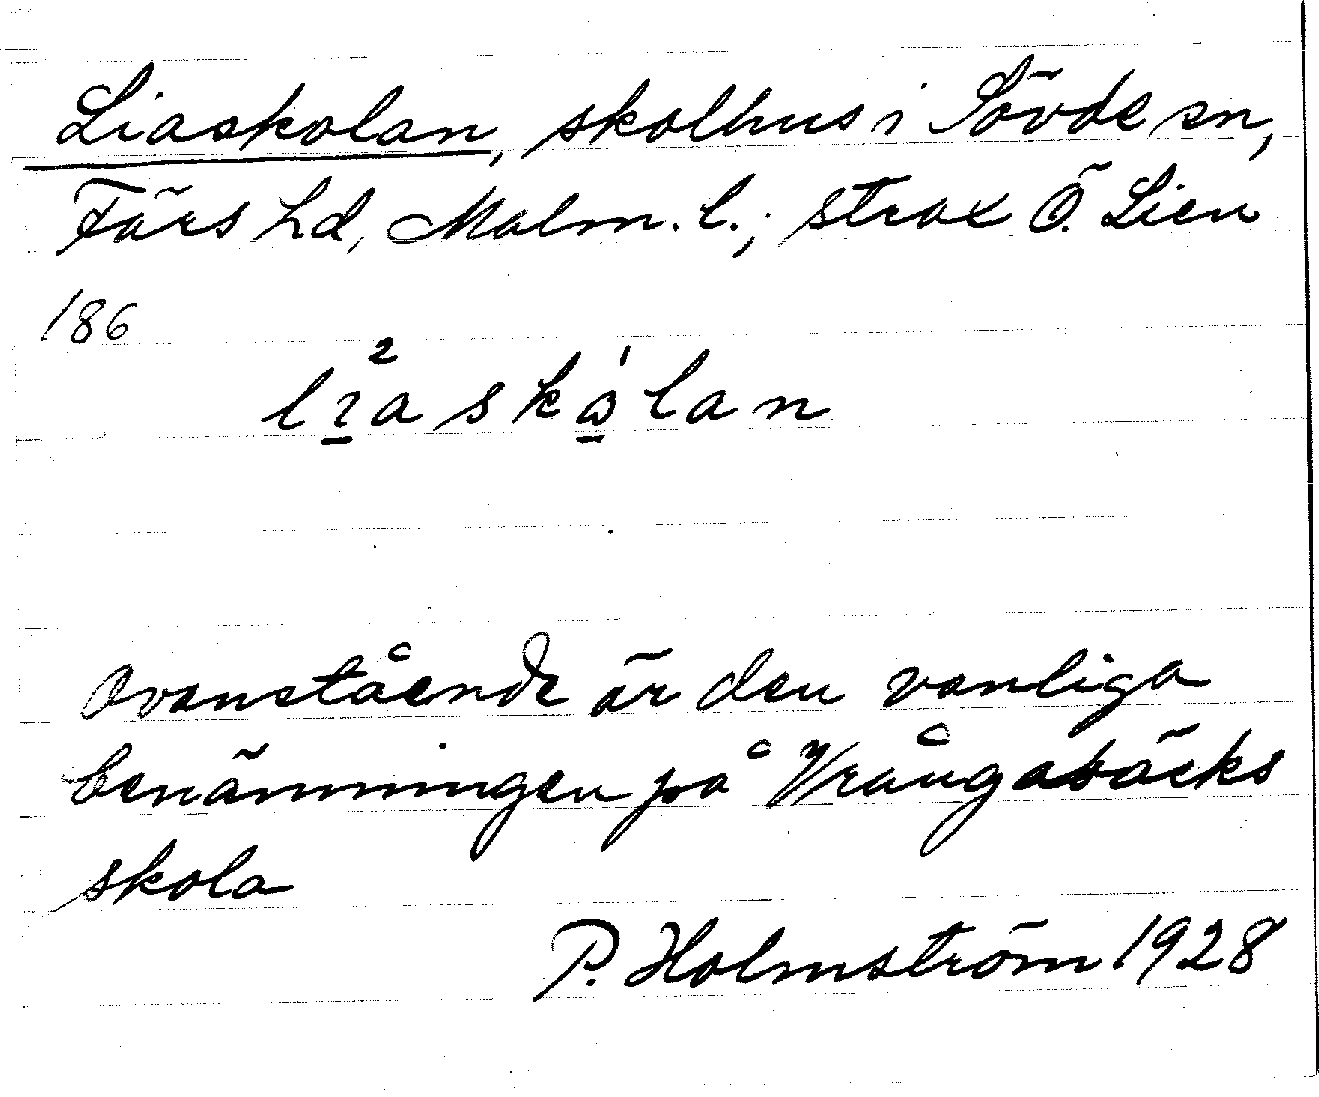 Liaskolan, skolhus i Sövde sn,
Färs hd, Malm. l.; strax Ö. Lien
186
lìaskɷ́lan
Ovanstående är den vanliga
benämningen på Vrångabäcks
skola
P. Holmström 1928